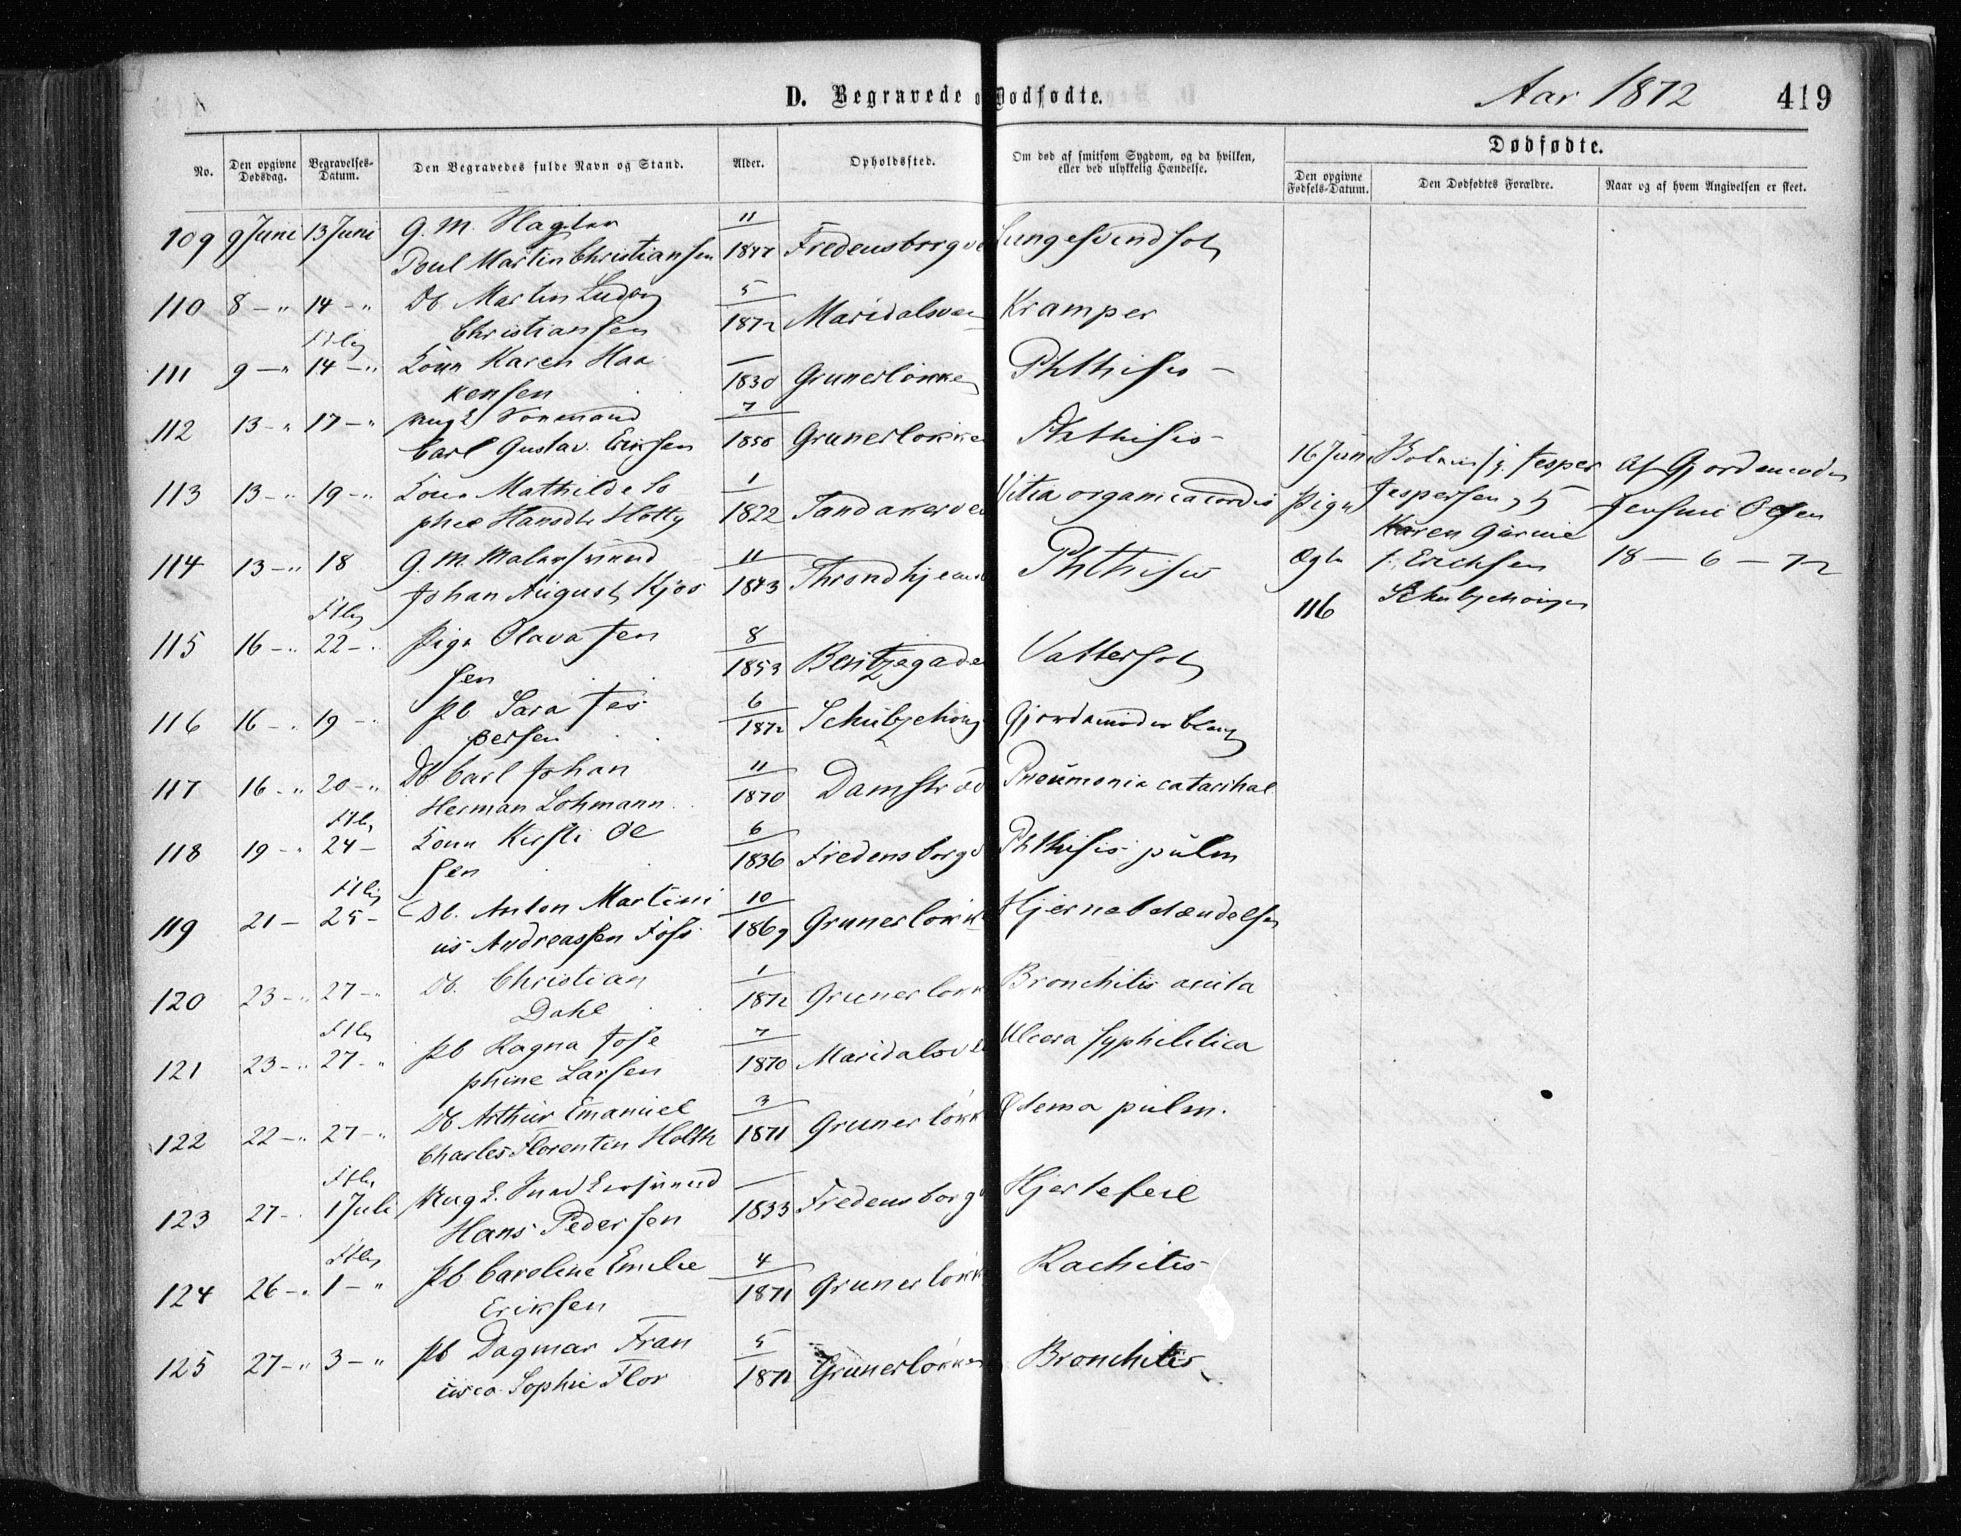 D. Begravede o Dødfødte.
Aar 1872
419
No.
Den opgivne Dødsdag.
Begravelses-Datum.
Den Begravedes fulde Navn og Stand.
Alder.
Opholdssted.
Om død af smitsom Sygdom, og da hvilken, eller ved ulykkelig Hændelse.
Dødfødte.
Den opgivne Fødsels-Datum.
Den Dødfødtes Forældre.
Naar og af hvem Angivelsen er skeet.
109 9 Juni 13 Juni G. M. 11
Poul Martin Christiansen 1847 Fredensborgve
110 8 - " 14 - " Db. Martin Ludvig 5
Christiansen 1872 Maridalsvei Kramper
111 9 - " 14 - " Karen Haa
kensen 1830 Grunerløkke Phthisis -
112 13 - " 17 - " Ung E 7
Carl Gustav Eriksen 1850 Grunerløkke Phthisis -
113 13 - " 19 - " Mathilde So 1
phie Hansdtr 1822 Vitia organica cordis
114 13 - " 18 G. M. 11
Johan August Kjos 1843 Throndhjems Phthisis
115 16 - " 22 - " Pige Olava Jen 8
sen 1853 Bentzegade Vattersot
116 16 - " 19 - " Pb Sara Jes 6
persen 1872
117 16 - " 20 - " Db Carl Johan 11
Herman Lohmann 1870 Damstræd Pneumonia catarrhal
118 19 - " 24 - Kirsti Ol 6
sen 1836 Fredensborgv Phthisis pulm
119 21 - 25 - Db. Anton Martini 10
us Andreassen Foss 1869 Grunerløkk Hjernebetændelse
120 23 - " 27 - " Db. Christian 1
Dahl 1872 Grunerløkk Bronchitis acuta
121 23 - " 27 - " Pb Ragna Jose 7
phine Larsen 1870 Maridalsve Ulcera syphilitica
122 22 - " 27 - " Db Arthur Emanuel 3
Charles Florentin Holth 1871 Grunerløkk Ødema pulm.
123 27 - " 1 Juli Ung E.
Hans Pedersen 1833 Fredensborgv Hjertefeil
124 26 - " 1 - " Pb Caroline Emilie 4
Eriksen 1871 Grunerløkk Rachitis
125 27 - " 3 - " Pb Dagmar Fran 5
cisca Sophie Flor 1871 Grunerløkke Bronchitis
16 Juni Jesper Af Gjordemoder
Pige Jespersen Olsen
Karen
Ægte f. Erichsen 18 - 6 - 72
116